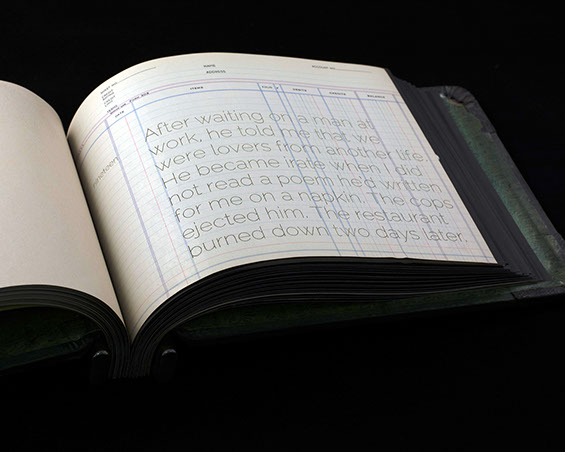 NAME
ADDRESS
ACCOUNT NO.
ITEMS
FOLIO
DEBITS
CREDITS
BALANCE
DATE
After waiting on a man at
work, he told me that we
were lovers from another life.
He became irate when I did
not read a poem he'd written
for me on a napkin. The cops
ejected him. The restaurant
burned down two days later.